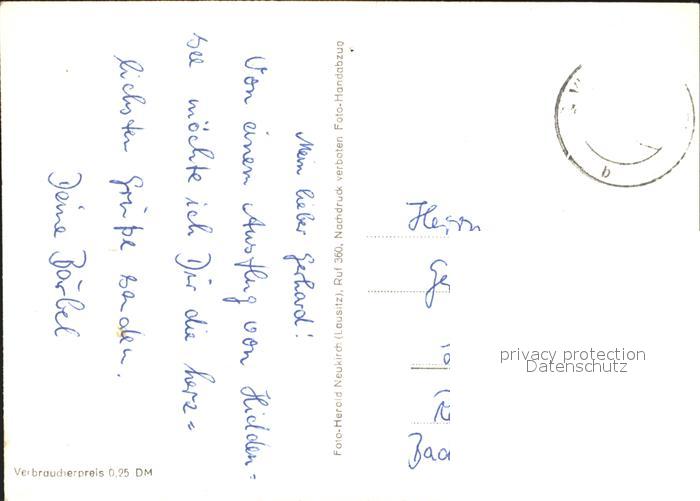 Mein lieber Gerhard!
Von einem Ausflug von Hidden=
see möchte ich Dir die herz=
lichsten Grüße senden.
Deine Bärbel
Foto-Herold Neukirch (Lausitz), Ruf 360, Nachdruck verboten Foto-Handabzug
Herrn
Ge
Baa
privacy protection
Datenschutz
b
Verbraucherpreis 0,25 DM